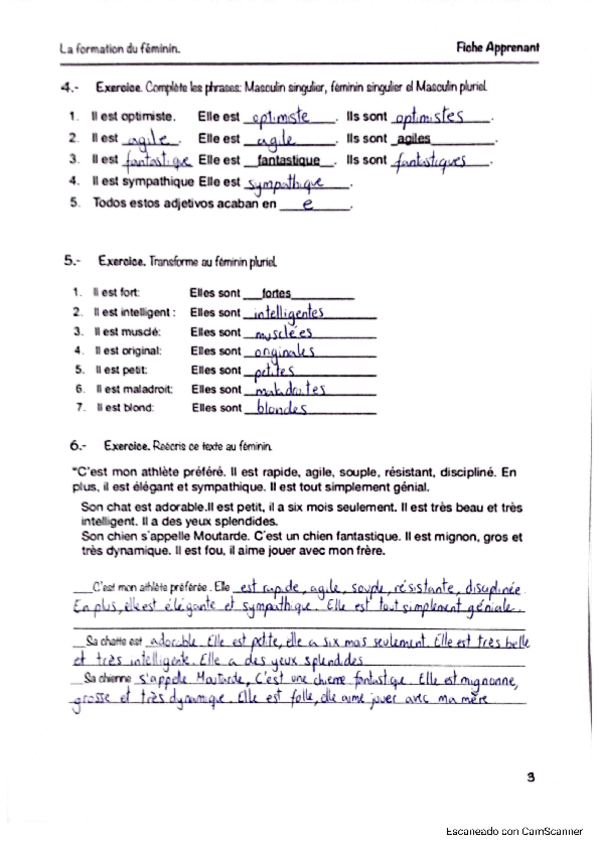 La formation du féminin. Fiche Apprenant
4.- Exercice. Complète les phrases: Masculin singulier, féminin singulier el Masculin pluriel.
1. Il est optimiste. Elle est optimiste. Ils sont optimistes.
2. Il est agile. Elle est agile. Ils sont agiles.
3. Il est fantastique Elle est fantastique. Ils sont fantastiques.
4. Il est sympathique Elle est sympathique.
5. Todos estos adjetivos acaban en e.
5.- Exercice. Transforme au féminin pluriel.
1. Il est fort: Elles sont fortes
2. Il est intelligent : Elles sont intelligentes
3. Il est musclé: Elles sont musclées
4. Il est original: Elles sont originales
5. Il est petit: Elles sont petites
6. Il est maladroit: Elles sont maladroites
7. Il est blond: Elles sont blondes
6.- Exercice. Reécris ce texte au féminin.
"C'est mon athlète préféré. Il est rapide, agile, souple, résistant, discipliné. En
plus, il est élégant et sympathique. Il est tout simplement génial.
Son chat est adorable.Il est petit, il a six mois seulement. Il est très beau et très
intelligent. Il a des yeux splendides.
Son chien s'appelle Moutarde. C'est un chien fantastique. Il est mignon, gros et
très dynamique. Il est fou, il aime jouer avec mon frère.
C'est mon athlète préférée. Elle est rapide, agile, souple, résistante, disciplinée.
En plus, elle est élégante et sympathique. Elle est tout simplement géniale.
Sa chatte est adorable. Elle est petite, elle a six mois seulement. Elle est très belle
et très intelligente. Elle a des yeux splendides
Sa chienne s'appelle Moutarde, C'est une chienne fantastique. Elle est mignonne,
grosse et très dynamique. Elle est folle, elle aime jouer avec ma mère
3
Escaneado con CamScanner